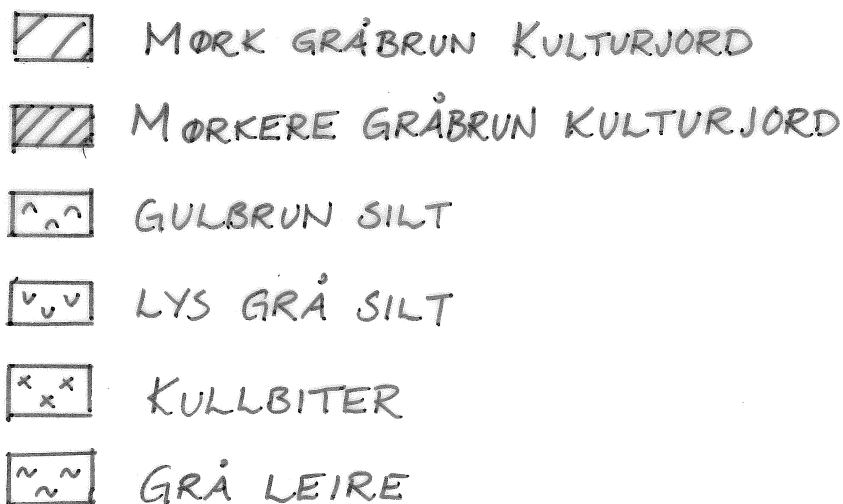 MØRK GRÅBRUN KULTURJORD
MØRKERE GRÅBRUN KULTURJORD
GULBRUN SILT
LYS GRÅ SILT
KULLBITER
GRÅ LEIRE